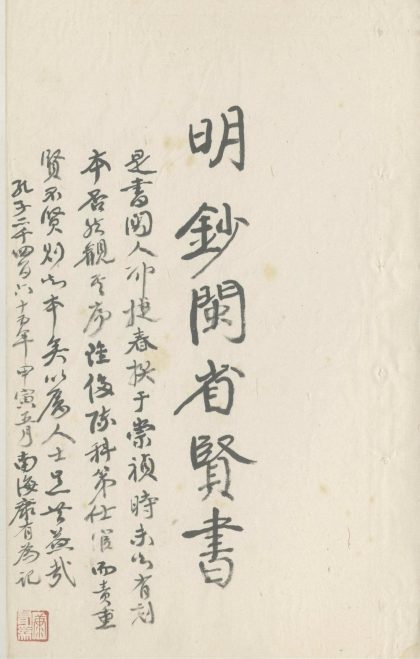 明鈔閩省賢書
是書閩人邵捷春撰于崇禎時未知有刻
本否然觀其序陳科第仕宦而責重
賢不賢則知本矣以厲人士是書益哉
孔子二千四百六十五年甲寅五月南海康有為記